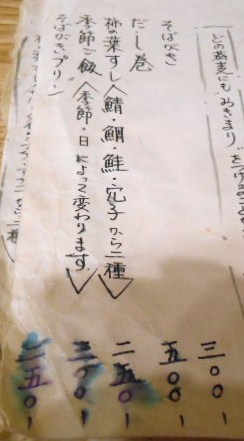 どの蕎麦にも おきまり
そばがき 三〇〇ー
だし巻 五〇〇ー
柿の葉すし〈鯖・鯛・鮭・穴子から二種〉 二五〇ー
季節ご飯〈季節・日によって変わります〉 三〇〇ー
そばがきプリン 二五〇ー